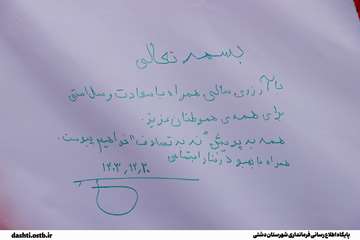 بسمه تعالی
با آرزوی سالی همراه با سعادت و سلامتی
برای همه ی هموطنان عزیز.
همه به پویش "نه به تصادف" خواهیم پیوست.
همراه با بهبود رفتار اجتماعی
۱۴۰۳/۱۲/۲۰
dashti.ostb.ir
پایگاه اطلاع رسانی فرمانداری شهرستان دشتی